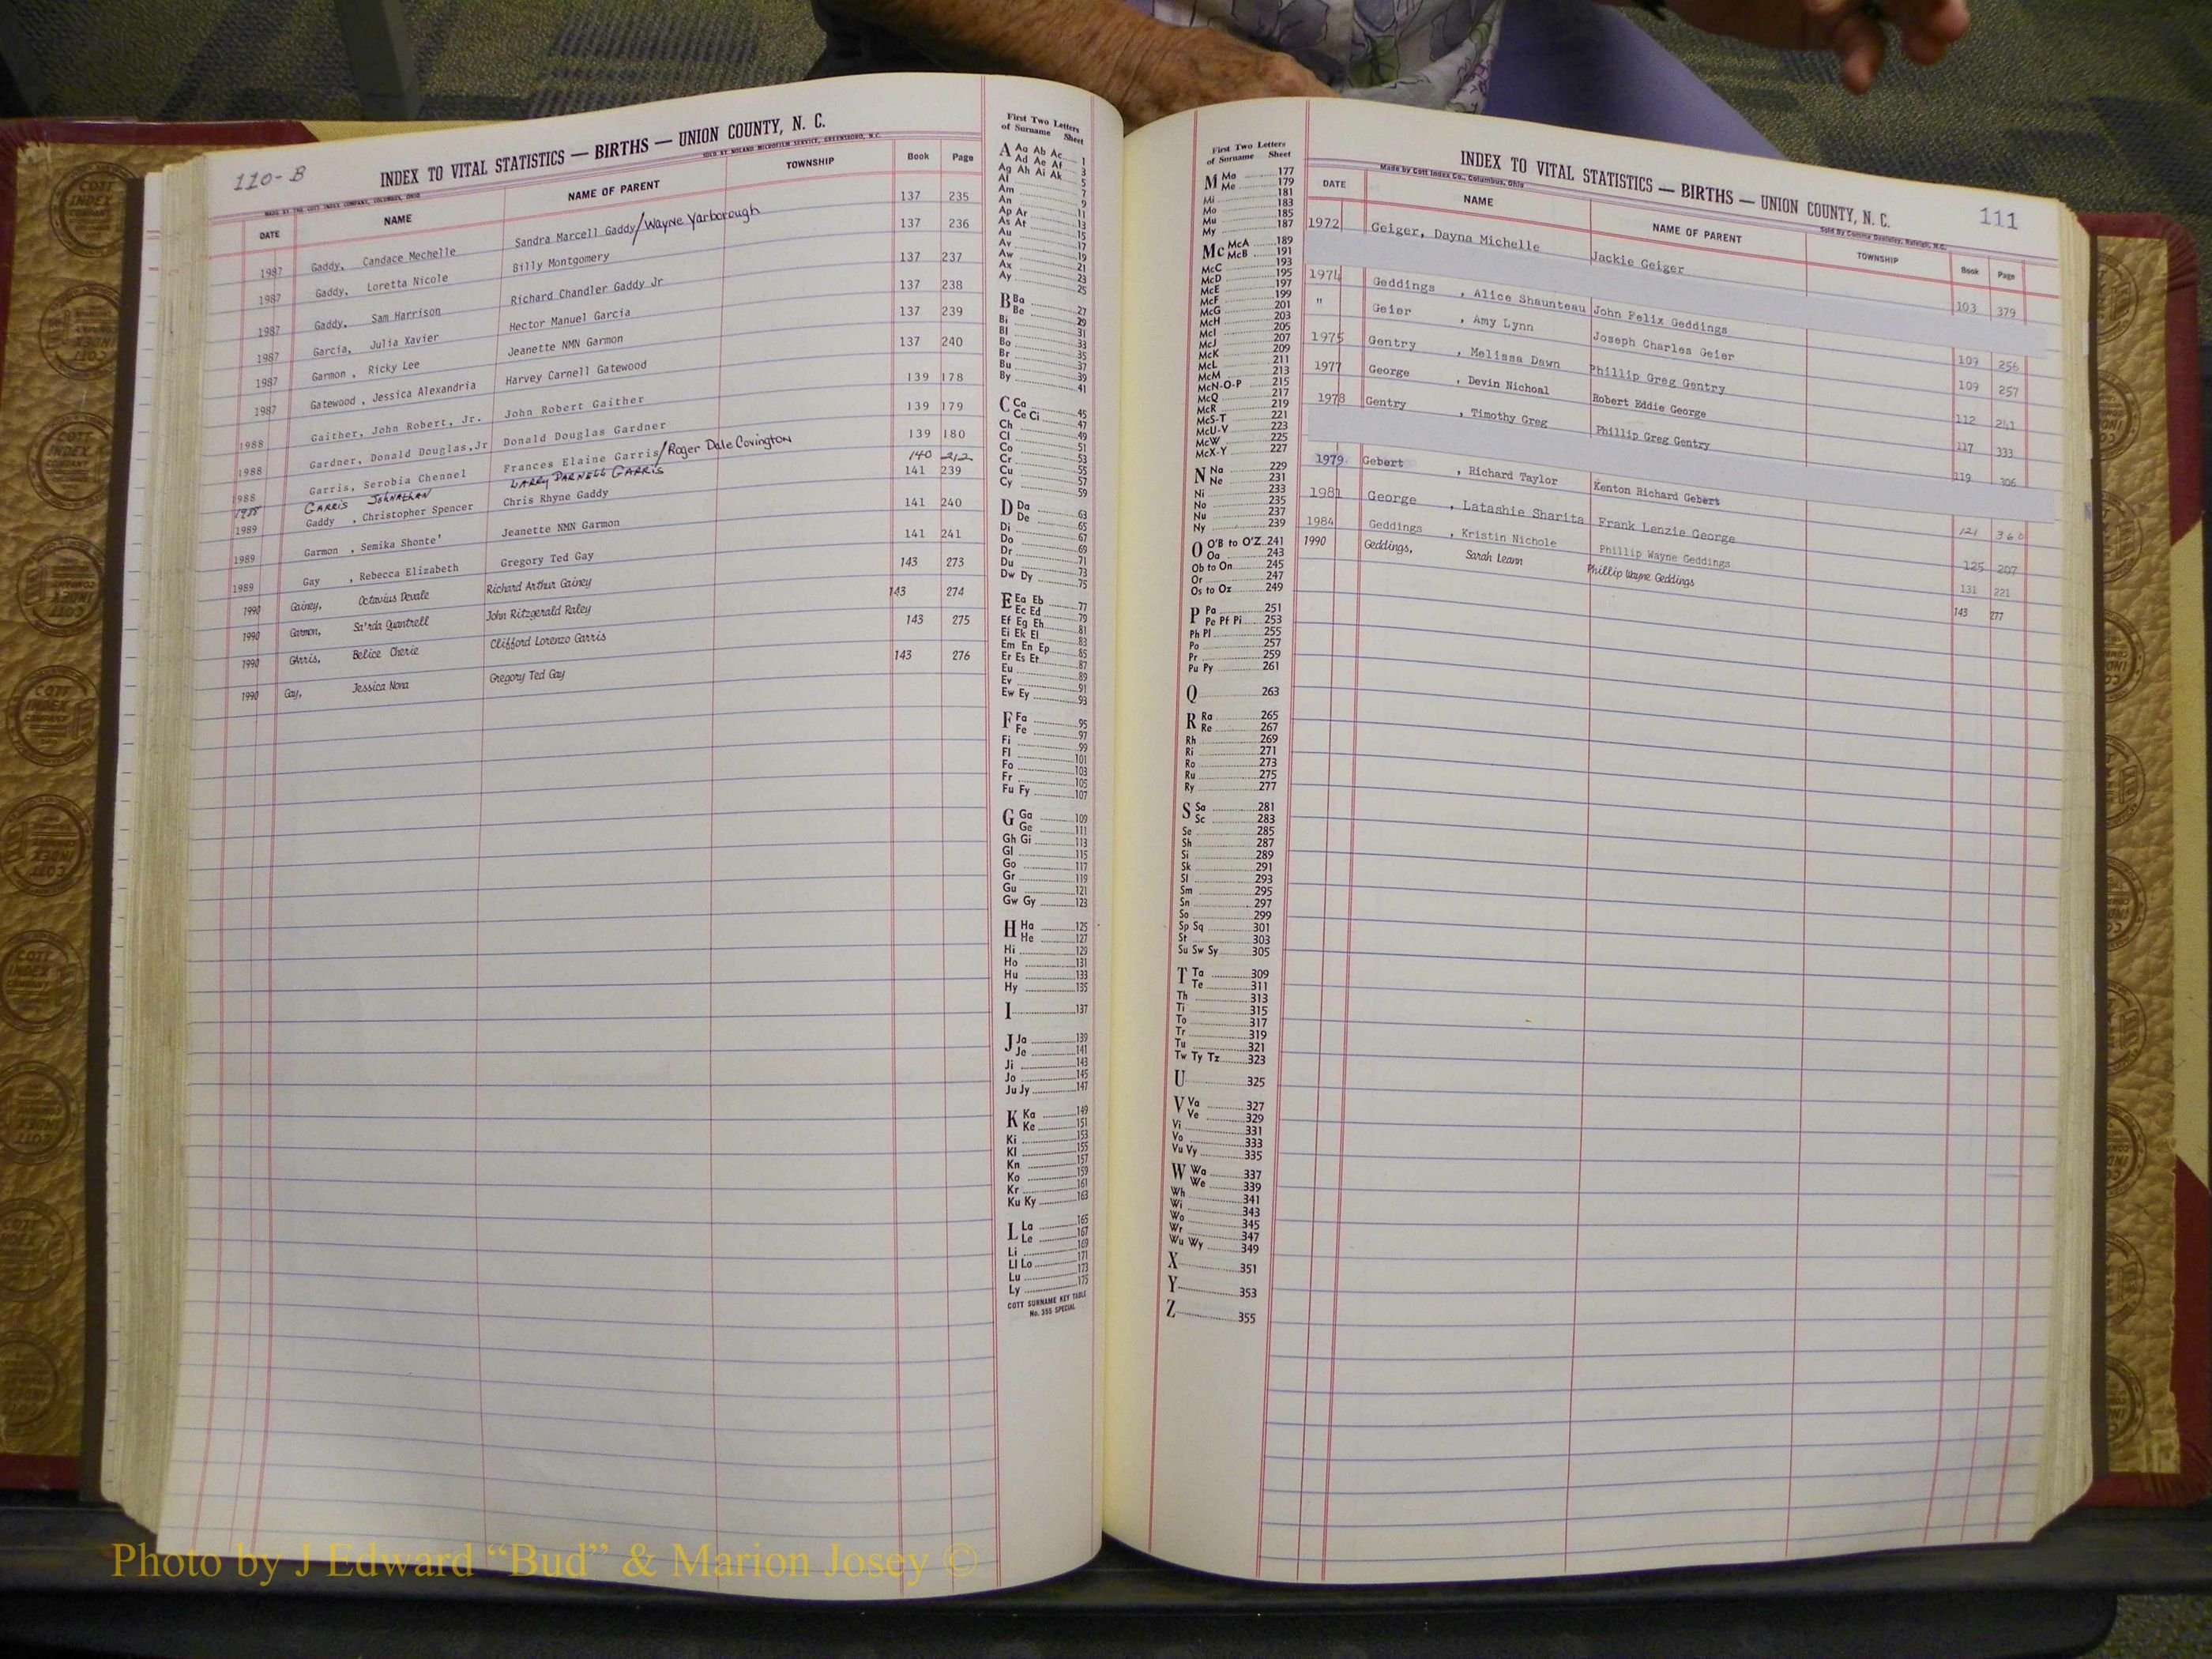 110-B
INDEX TO VITAL STATISTICS — BIRTHS — UNION COUNTY, N. C.
MADE BY THE COTT INDEX COMPANY, COLUMBUS, OHIO SOLD BY NOLAND MICROFILM SERVICE, GREENSBORO, N.C.
DATE NAME NAME OF PARENT TOWNSHIP Book Page
1987 Gaddy, Candace Mechelle Sandra Marcell Gaddy/Wayne Yarborough 137 235
1987 Gaddy, Loretta Nicole Billy Montgomery 137 236
1987 Gaddy, Sam Harrison Richard Chandler Gaddy Jr 137 237
1987 Garcia, Julia Xavier Hector Manuel Garcia 137 238
1987 Garmon, Ricky Lee Jeanette NMN Garmon 137 239
1987 Gatewood, Jessica Alexandria Harvey Carnell Gatewood 137 240
1988 Gaither, John Robert, Jr. John Robert Gaither 139 178
1988 Gardner, Donald Douglas,Jr Donald Douglas Gardner 139 179
1988 Garris, Serobia Chennel Frances Elaine Garris/Roger Dale Covington 139 180
GARRIS JOHNATHAN LARRY DARNELL GARRIS 140 212
1989 Gaddy , Christopher Spencer Chris Rhyne Gaddy 141 239
1989 Garmon , Semika Shonte' Jeanette NMN Garmon 141 240
1989 Gay , Rebecca Elizabeth Gregory Ted Gay 141 241
1990 Gainey, Octavius Devale Richard Arthur Gainey 143 273
1990 Garmon, Sa'rda Quantrell John Ritzgerald Raley 143 274
1990 Garris, Belice Cherie Clifford Lorenzo Garris 143 275
1990 Gay, Jessica Nona Gregory Ted Gay 143 276
First Two Letters
of Surname Sheet
A Aa Ab Ac 1
Ad Ae Af 3
Ag Ah Ai Ak 5
Al 7
Am 9
An 11
Ap Ar 13
As At 15
Au 17
Av 19
Aw 21
Ax 23
Ay 25
B Ba 27
Be 29
Bi 31
Bl 33
Bo 35
Br 37
Bu 39
By 41
C Ca 45
Ce Ci 47
Ch 49
Cl 51
Co 53
Cr 55
Cu 57
Cy 59
D Da 63
De 65
Di 67
Do 69
Dr 71
Du 73
Dw Dy 75
E Ea Eb 77
Ec Ed 79
Ef Eg Eh 81
Ei Ek El 83
Em En Ep 85
Er Es Et 87
Eu 89
Ev 91
Ew Ey 93
F Fa 95
Fe 97
Fi 99
Fl 101
Fo 103
Fr 105
Fu Fy 107
G Ga 109
Ge 111
Gh Gi 113
Gl 115
Go 117
Gr 119
Gu 121
Gw Gy 123
H Ha 125
He 127
Hi 129
Ho 131
Hu 133
Hy 135
I 137
J Ja 139
Je 141
Ji 143
Jo 145
Ju Jy 147
K Ka 149
Ke 151
Ki 153
Kl 155
Kn 157
Ko 159
Kr 161
Ku Ky 163
L La 165
Le 167
Li 169
Ll Lo 171
Lu 173
Ly 175
COTT SURNAME KEY TABLE
No. 355 SPECIAL
First Two Letters
of Surname Sheet
M Ma 177
Me 179
Mi 181
Mo 183
Mu 185
My 187
Mc McA 189
McB 191
McC 193
McD 195
McE 197
McF 199
McG 201
McH 203
McI 205
McJ 207
McK 209
McL 211
McM 213
McN-O-P 215
McQ 217
McR 219
McS-T 221
McU-V 223
McW 225
McX-Y 227
N Na 229
Ne 231
Ni 233
No 235
Nu 237
Ny 239
O O'B to O'Z 241
Oa 243
Ob to On 245
Or 247
Os to Oz 249
P Pa 251
Pe Pf Pi 253
Ph Pl 255
Po 257
Pr 259
Pu Py 261
Q 263
R Ra 265
Re 267
Rh 269
Ri 271
Ro 273
Ru 275
Ry 277
S Sa 281
Sc 283
Se 285
Sh 287
Si 289
Sk 291
Sl 293
Sm 295
Sn 297
So 299
Sp Sq 301
St 303
Su Sw Sy 305
T Ta 309
Te 311
Th 313
Ti 315
To 317
Tr 319
Tu 321
Tw Ty Tz 323
U 325
V Va 327
Ve 329
Vi 331
Vo 333
Vu Vy 335
W Wa 337
We 339
Wh 341
Wi 343
Wo 345
Wr 347
Wu Wy 349
X 351
Y 353
Z 355
INDEX TO VITAL STATISTICS — BIRTHS — UNION COUNTY, N. C. 111
Made by Cott Index Co., Columbus, Ohio
DATE NAME NAME OF PARENT TOWNSHIP Book Page
1972 Geiger, Dayna Michelle Jackie Geiger 103 379
1974 Geddings , Alice Shaunteau John Felix Geddings 109 256
" Geier , Amy Lynn Joseph Charles Geier 109 257
1975 Gentry , Melissa Dawn Phillip Greg Gentry 112 241
1977 George , Devin Nichoal Robert Eddie George 117 333
1978 Gentry , Timothy Greg Phillip Greg Gentry 119 306
1979 Gebert , Richard Taylor Kenton Richard Gebert 121 360
1981 George , Latashie Sharita Frank Lenzie George 125 207
1984 Geddings , Kristin Nichole Phillip Wayne Geddings 131 221
1990 Geddings, Sarah Leann Phillip Wayne Geddings 143 277
Photo by J Edward “Bud” & Marion Josey ©